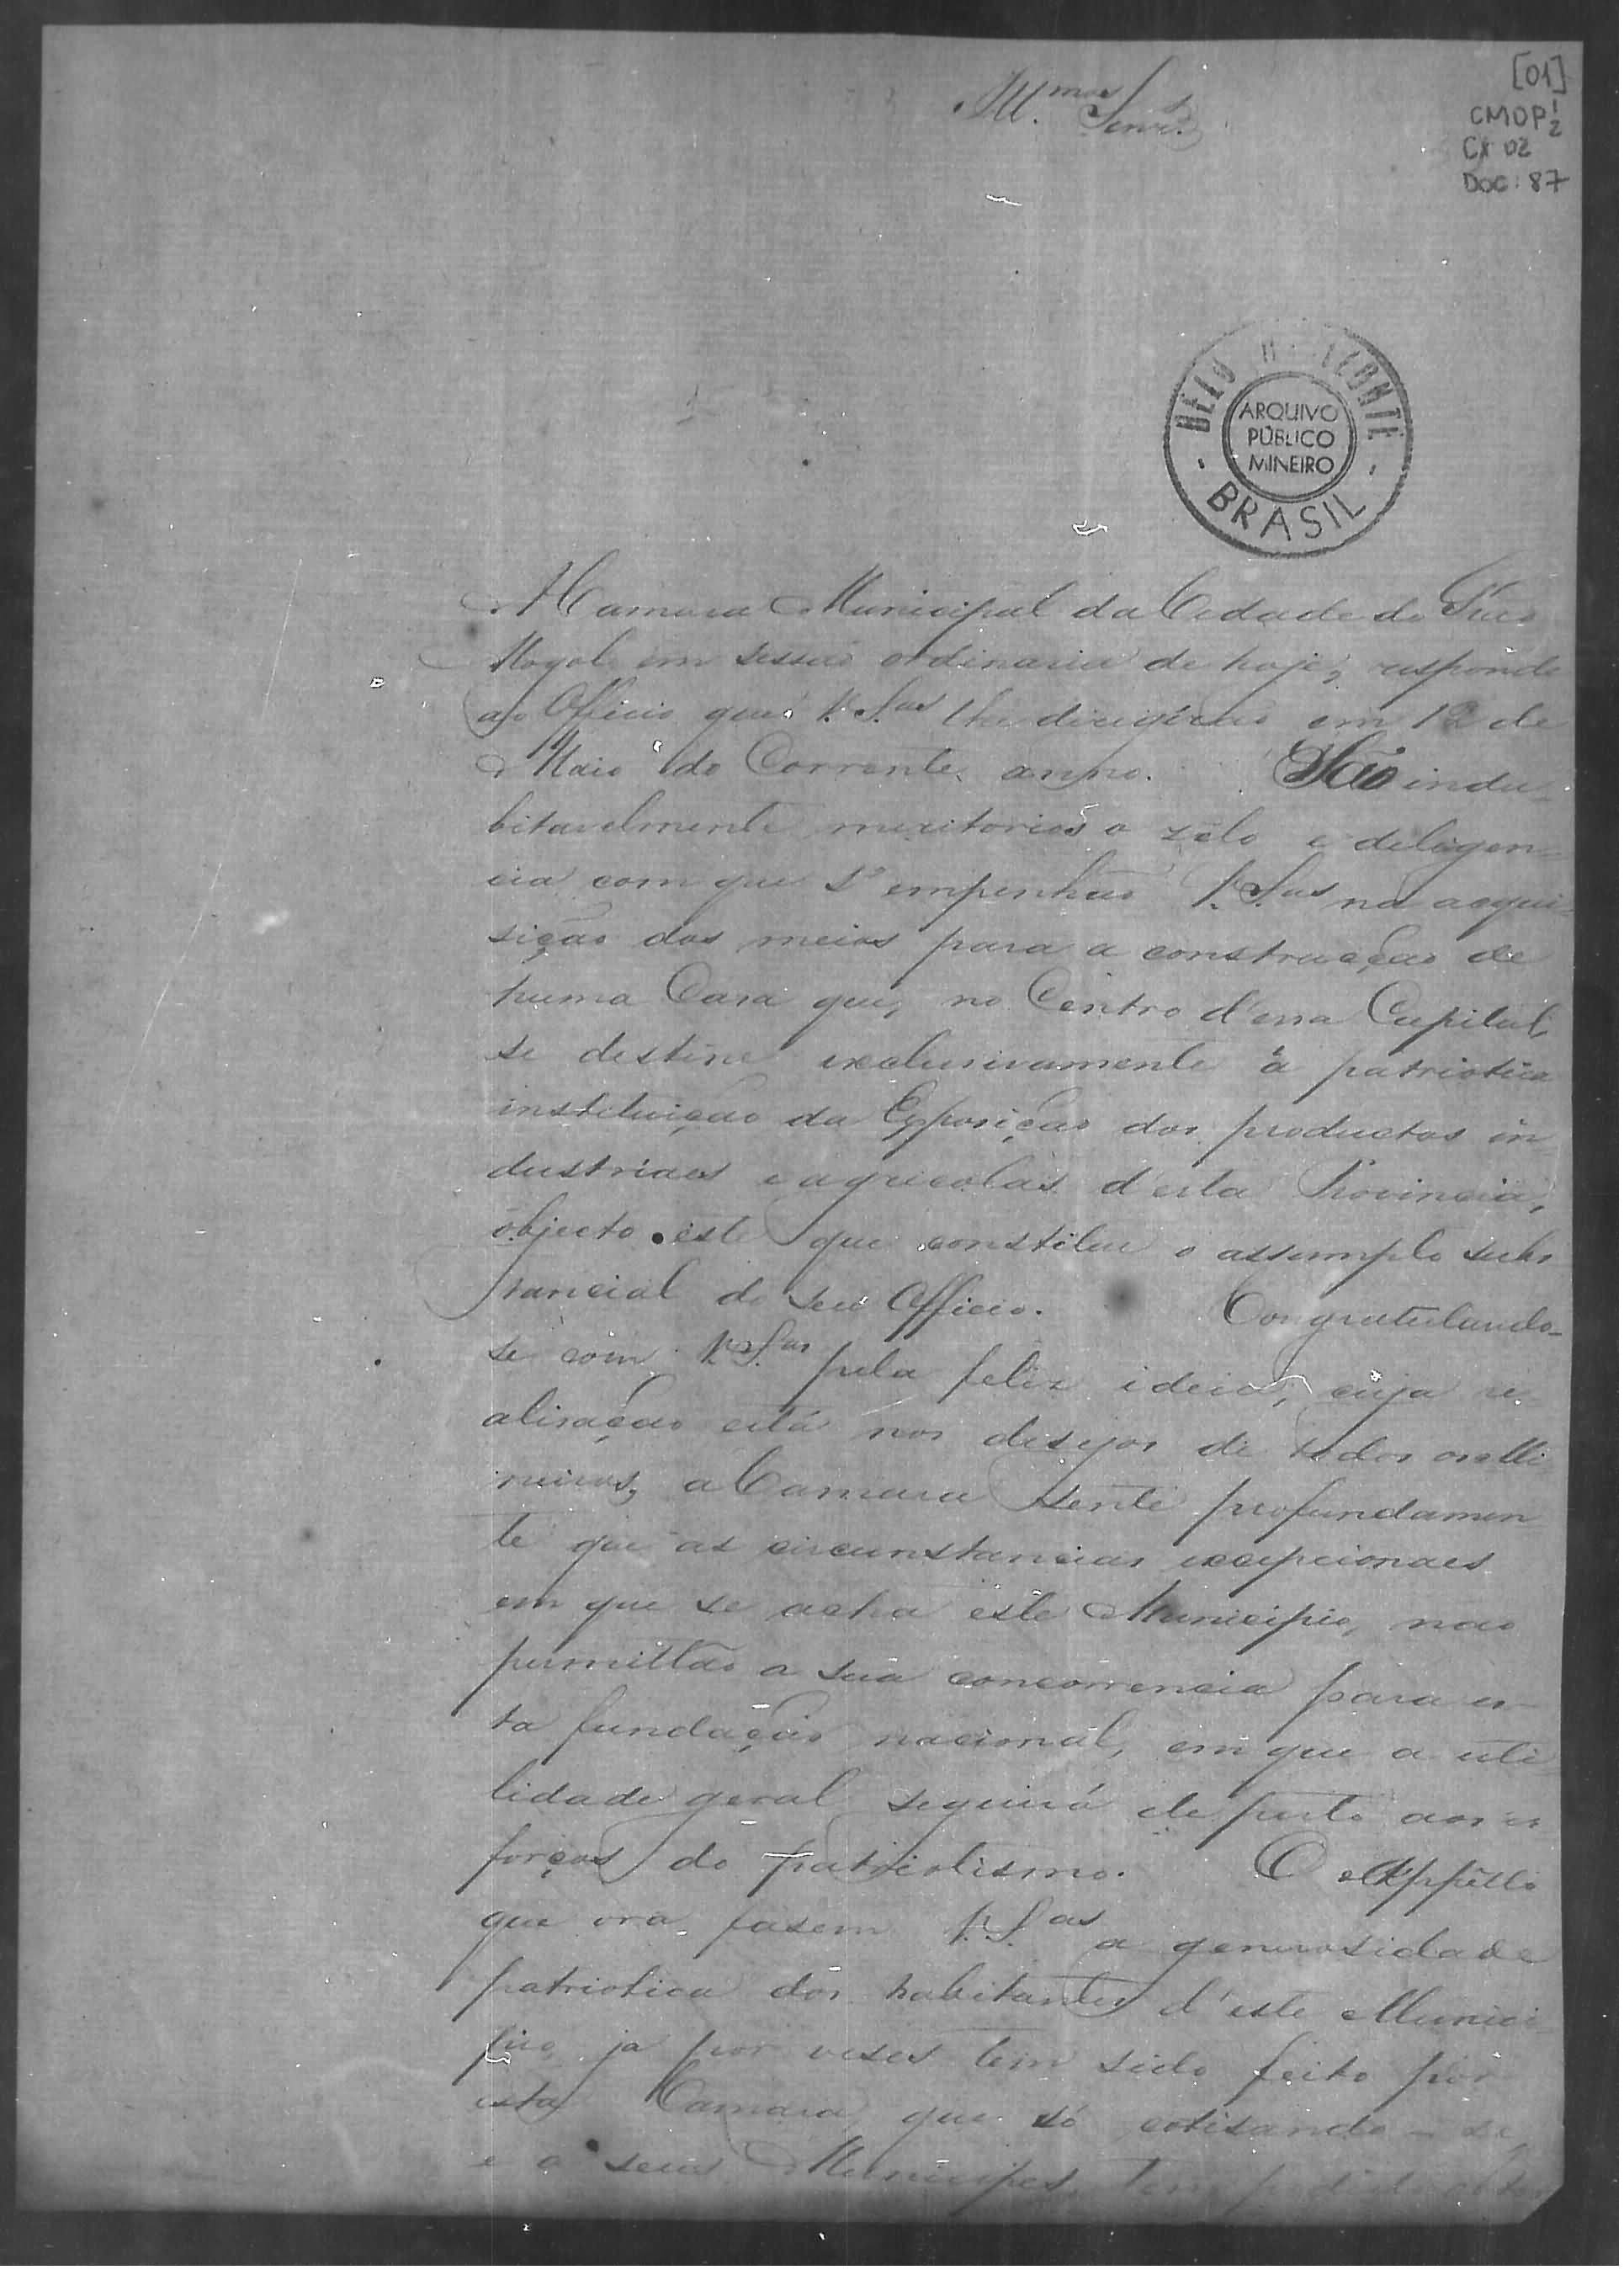 Ill.mos Senr.es
[01]
CMOP 1/2
CX 02
Doc: 87
BELO HORIZONTE
ARQUIVO
PÚBLICO
MINEIRO
BRASIL
A Camara Municipal da Cidade do
Mogol em sessão ordinaria de hoje, responde
ao Officio que V. S.as lhe dirigirão em 12 de
Maio do Corrente anno. São indu-
bitavelmente meritorios o zêlo e deligen-
cia com que s'empenhão V. S.as na acqui-
sição dos meios para a construcção de
huma Casa que, no Centro d'essa Capital,
se destine exclusivamente à patriotica
instituição da Exposição dos productos in-
dustriaes e agricolas d'esta Provincia,
objecto este que constitue o assumpto subs
tancial do seu Officio. Congratulando-
se com V. S.as pela feliz ideia, cuja re-
alisação está nos desejos de todos os Mi-
neiros, a Camara sente profundamen
te que as circunstancias excepcionaes
em que se acha este Municipio, não
permittão a sua concorrencia para es-
ta fundação nacional, em que a uti
lidade geral seguirá de perto aos es
forços do patriotismo. O Appêllo
que ora fasem V. S.as a generosidade
patriotica dos habitantes d'este Munici
pio, ja por veses tem sido feito por
esta Camara, que só cotisando-se,
e a seus Municipes, tem podido